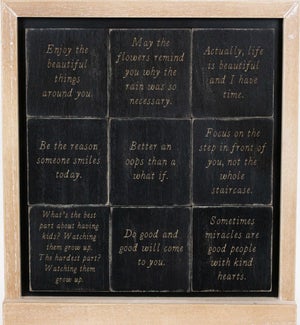 Enjoy the
beautiful
things
around you.
May the
flowers remind
you why the
rain was so
necessary.
Actually, life
is beautiful
and I have
time.
Be the reason
someone smiles
today.
Better an
oops than a
what if.
Focus on the
step in front of
you, not the
whole
staircase.
What's the best
part about having
kids? Watching
them grow up.
The hardest part?
Watching them
grow up.
Do good and
good will come
to you.
Sometimes
miracles are
good people
with kind
hearts.